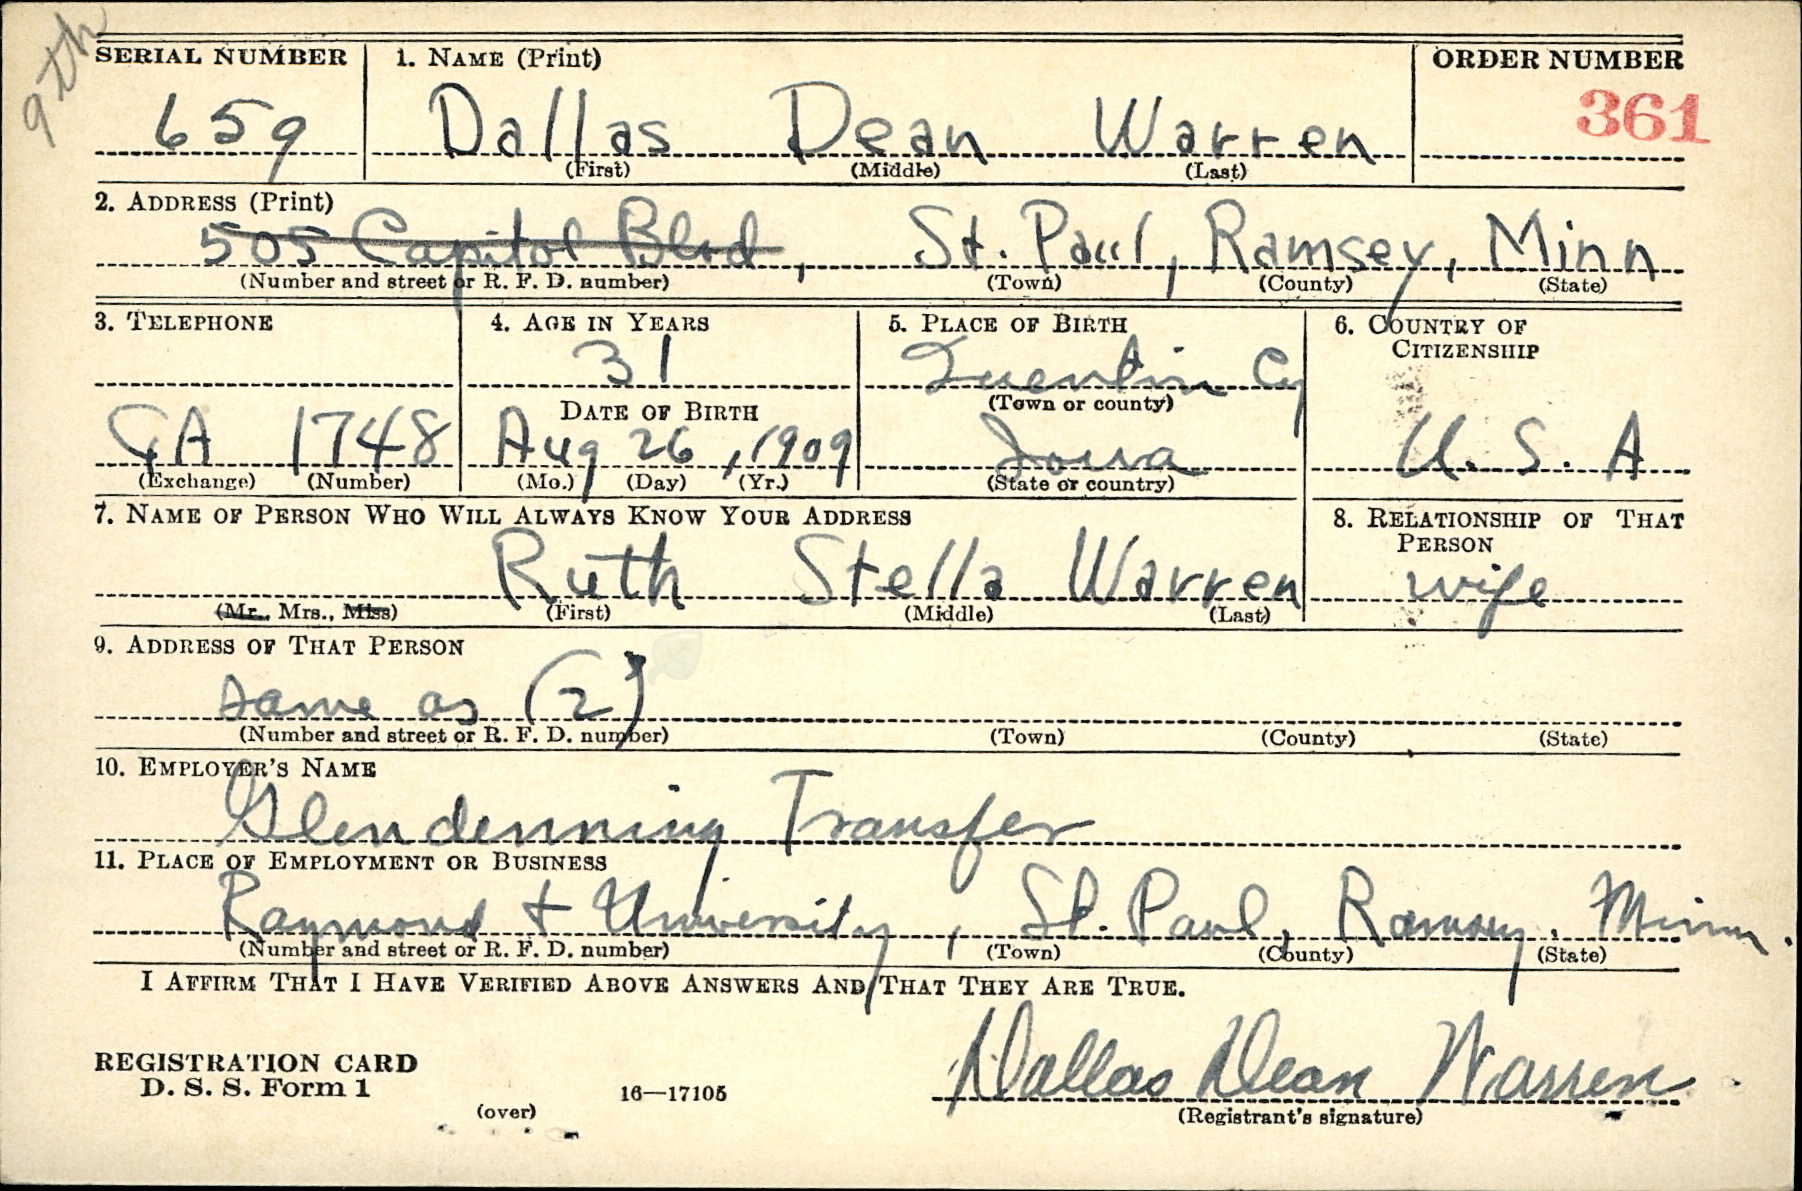 9th
SERIAL NUMBER 1. NAME (Print) ORDER NUMBER
659 Dallas Dean Warren 361
(First) (Middle) (Last)
2. ADDRESS (Print)
505 Capitol Blvd, St. Paul, Ramsey, Minn
(Number and street or R. F. D. number) (Town) (County) (State)
3. TELEPHONE 4. AGE IN YEARS 5. PLACE OF BIRTH 6. COUNTRY OF
CITIZENSHIP
31 Quentin Cy
(Town or county)
DATE OF BIRTH
GA 1748 Aug 26, 1909 Iowa U. S. A
(Exchange) (Number) (Mo.) (Day) (Yr.) (State or country)
7. NAME OF PERSON WHO WILL ALWAYS KNOW YOUR ADDRESS 8. RELATIONSHIP OF THAT
PERSON
Ruth Stella Warren wife
(Mr., Mrs., Miss) (First) (Middle) (Last)
9. ADDRESS OF THAT PERSON
same as (2)
(Number and street or R. F. D. number) (Town) (County) (State)
10. EMPLOYER'S NAME
Glendenning Transfer
11. PLACE OF EMPLOYMENT OR BUSINESS
Raymond + University, St. Paul, Ramsey. Minn.
(Number and street or R. F. D. number) (Town) (County) (State)
I AFFIRM THAT I HAVE VERIFIED ABOVE ANSWERS AND THAT THEY ARE TRUE.
REGISTRATION CARD
D. S. S. Form 1 16—17105 Dallas Dean Warren
(over) (Registrant's signature)